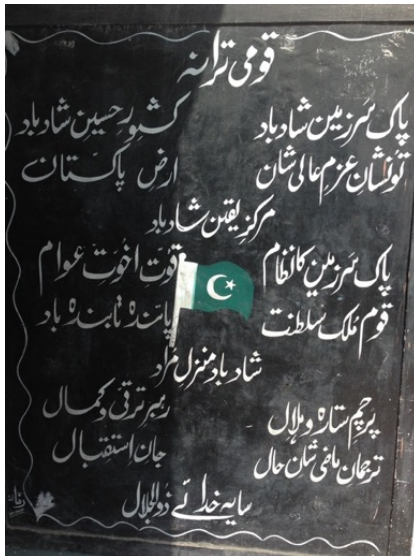 قومی ترانہ
پاک سرزمین شادباد کشورِ حسین شادباد
تو نشانِ عزمِ عالی شان ارض پاکستان
مرکزِ یقین شادباد
پاک سرزمین کا نظام قوتِ اخوتِ عوام
قوم ملک سلطنت پائندہ تابندہ باد
شاد باد منزل مراد
پرچم ستارہ و ہلال رہبر ترقی و کمال
ترجمان ماضی شان حال جان استقبال
سایہ خدائے ذوالجلال